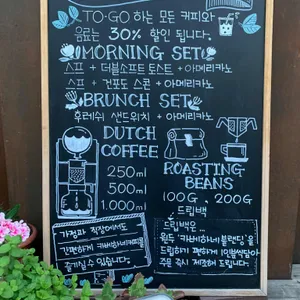 TO-GO 하는 모든 커피와
음료는 30% 할인 됩니다.
MORNING SET
스프 + 더블소프트 토스트 + 아메리카노
스프 + 건포도 스콘 + 아메리카노
BRUNCH SET
후레쉬 샌드위치 + 아메리카노
DUTCH
COFFEE
250ml
500ml
1.000ml
ROASTING
BEANS
100G, 200G
드립백
가정과 직장에서도
간편하게 카베하네커피를
즐기실 수 있습니다.
드립백은...
원두 "카베하네블렌딩"을
드립하기 편하게 1인분씩담아
주문 즉시 제조해 드립니다.